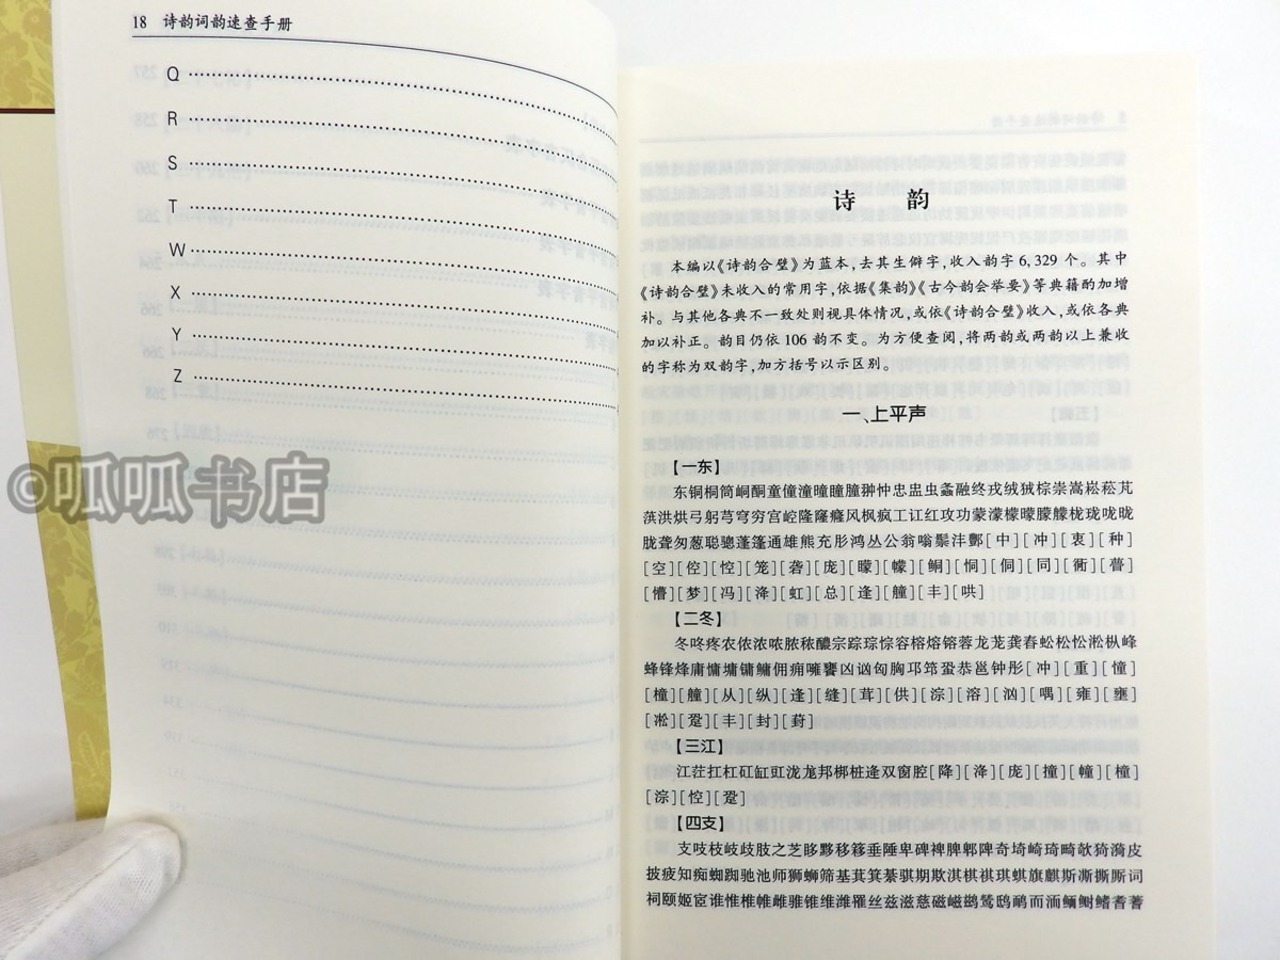 18 诗韵词韵速查手册
Q
R
S
T
W
X
Y
Z
©呱呱书店
诗 韵
本编以《诗韵合璧》为蓝本，去其生僻字，收入韵字 6,329 个。其中
《诗韵合璧》未收入的常用字，依据《集韵》《古今韵会举要》等典籍酌加增
补。与其他各典不一致处则视具体情况，或依《诗韵合璧》收入，或依各典
加以补正。韵目仍依 106 韵不变。为方便查阅，将两韵或两韵以上兼收
的字称为双韵字，加方括号以示区别。
一、上平声
【一东】
东铜桐筒峒酮童僮潼曈瞳朣翀忡忠盅虫螽融终戎绒狨棕崇嵩崧菘芃
蕻洪烘弓躬芎穹穷宫崆隆窿癃风枫疯工讧红攻功蒙濛檬曚朦艨栊珑咙昽
胧聋匆葱聪骢蓬篷通雄熊充肜鸿丛公翁嗡鬃沣酆[中][冲][衷][种]
[空][倥][悾][笼][砻][庞][矇][幪][鲖][恫][侗][同][衕][瞢]
[懵][梦][冯][洚][虹][总][逢][艟][丰][哄]
【二冬】
冬咚疼农侬浓哝脓秾醲宗踪琮悰容榕熔镕蓉龙茏龚舂蚣松忪淞枞峰
蜂锋烽庸慵墉镛鳙佣痈噰饔凶讻匈胸邛筇蛩恭邕钟彤[冲][重][憧]
[橦][艟][从][纵][逢][缝][茸][供][淙][溶][汹][喁][雍][壅]
[凇][跫][丰][封][葑]
【三江】
江茳扛杠矼缸豇泷龙邦梆桩逄双窗腔[降][洚][庞][撞][幢][橦]
[淙][悾][跫]
【四支】
支吱枝岐歧肢之芝眵黟移簃垂陲卑碑裨脾郫陴奇埼崎琦畸欹猗漪皮
披疲知痴蜘踟驰池师狮蛳筛基萁箕綦骐期欺淇棋祺琪蜞旗麒斯澌撕厮词
祠颐姬宧谁惟椎帷雌骓锥维潍罹丝兹滋慈磁嵫鹚鸶鸱鸸而洏鲕鲥鳍耆蓍